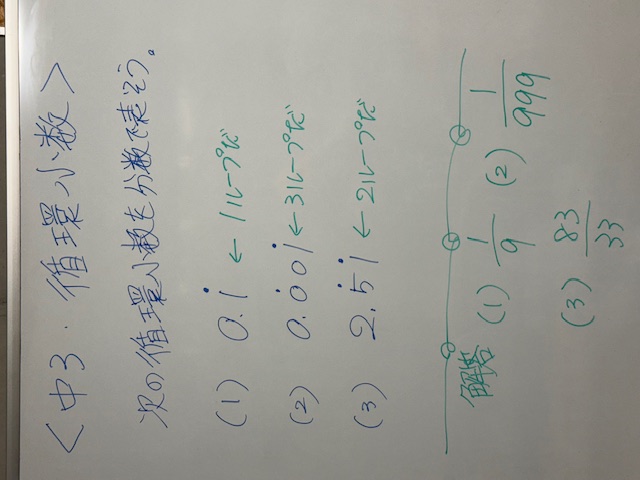 <中3・循環小数>
次の循環小数を分数で表そう。
(1) 0.1̇ ←1ループだ
(2) 0.0̇01̇ ←3ループだ
(3) 2.5̇1̇ ←2ループだ
解答 (1) 1/9 (2) 1/999
(3) 83/33